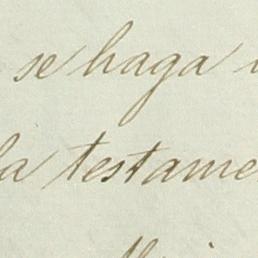 se haga
la testame